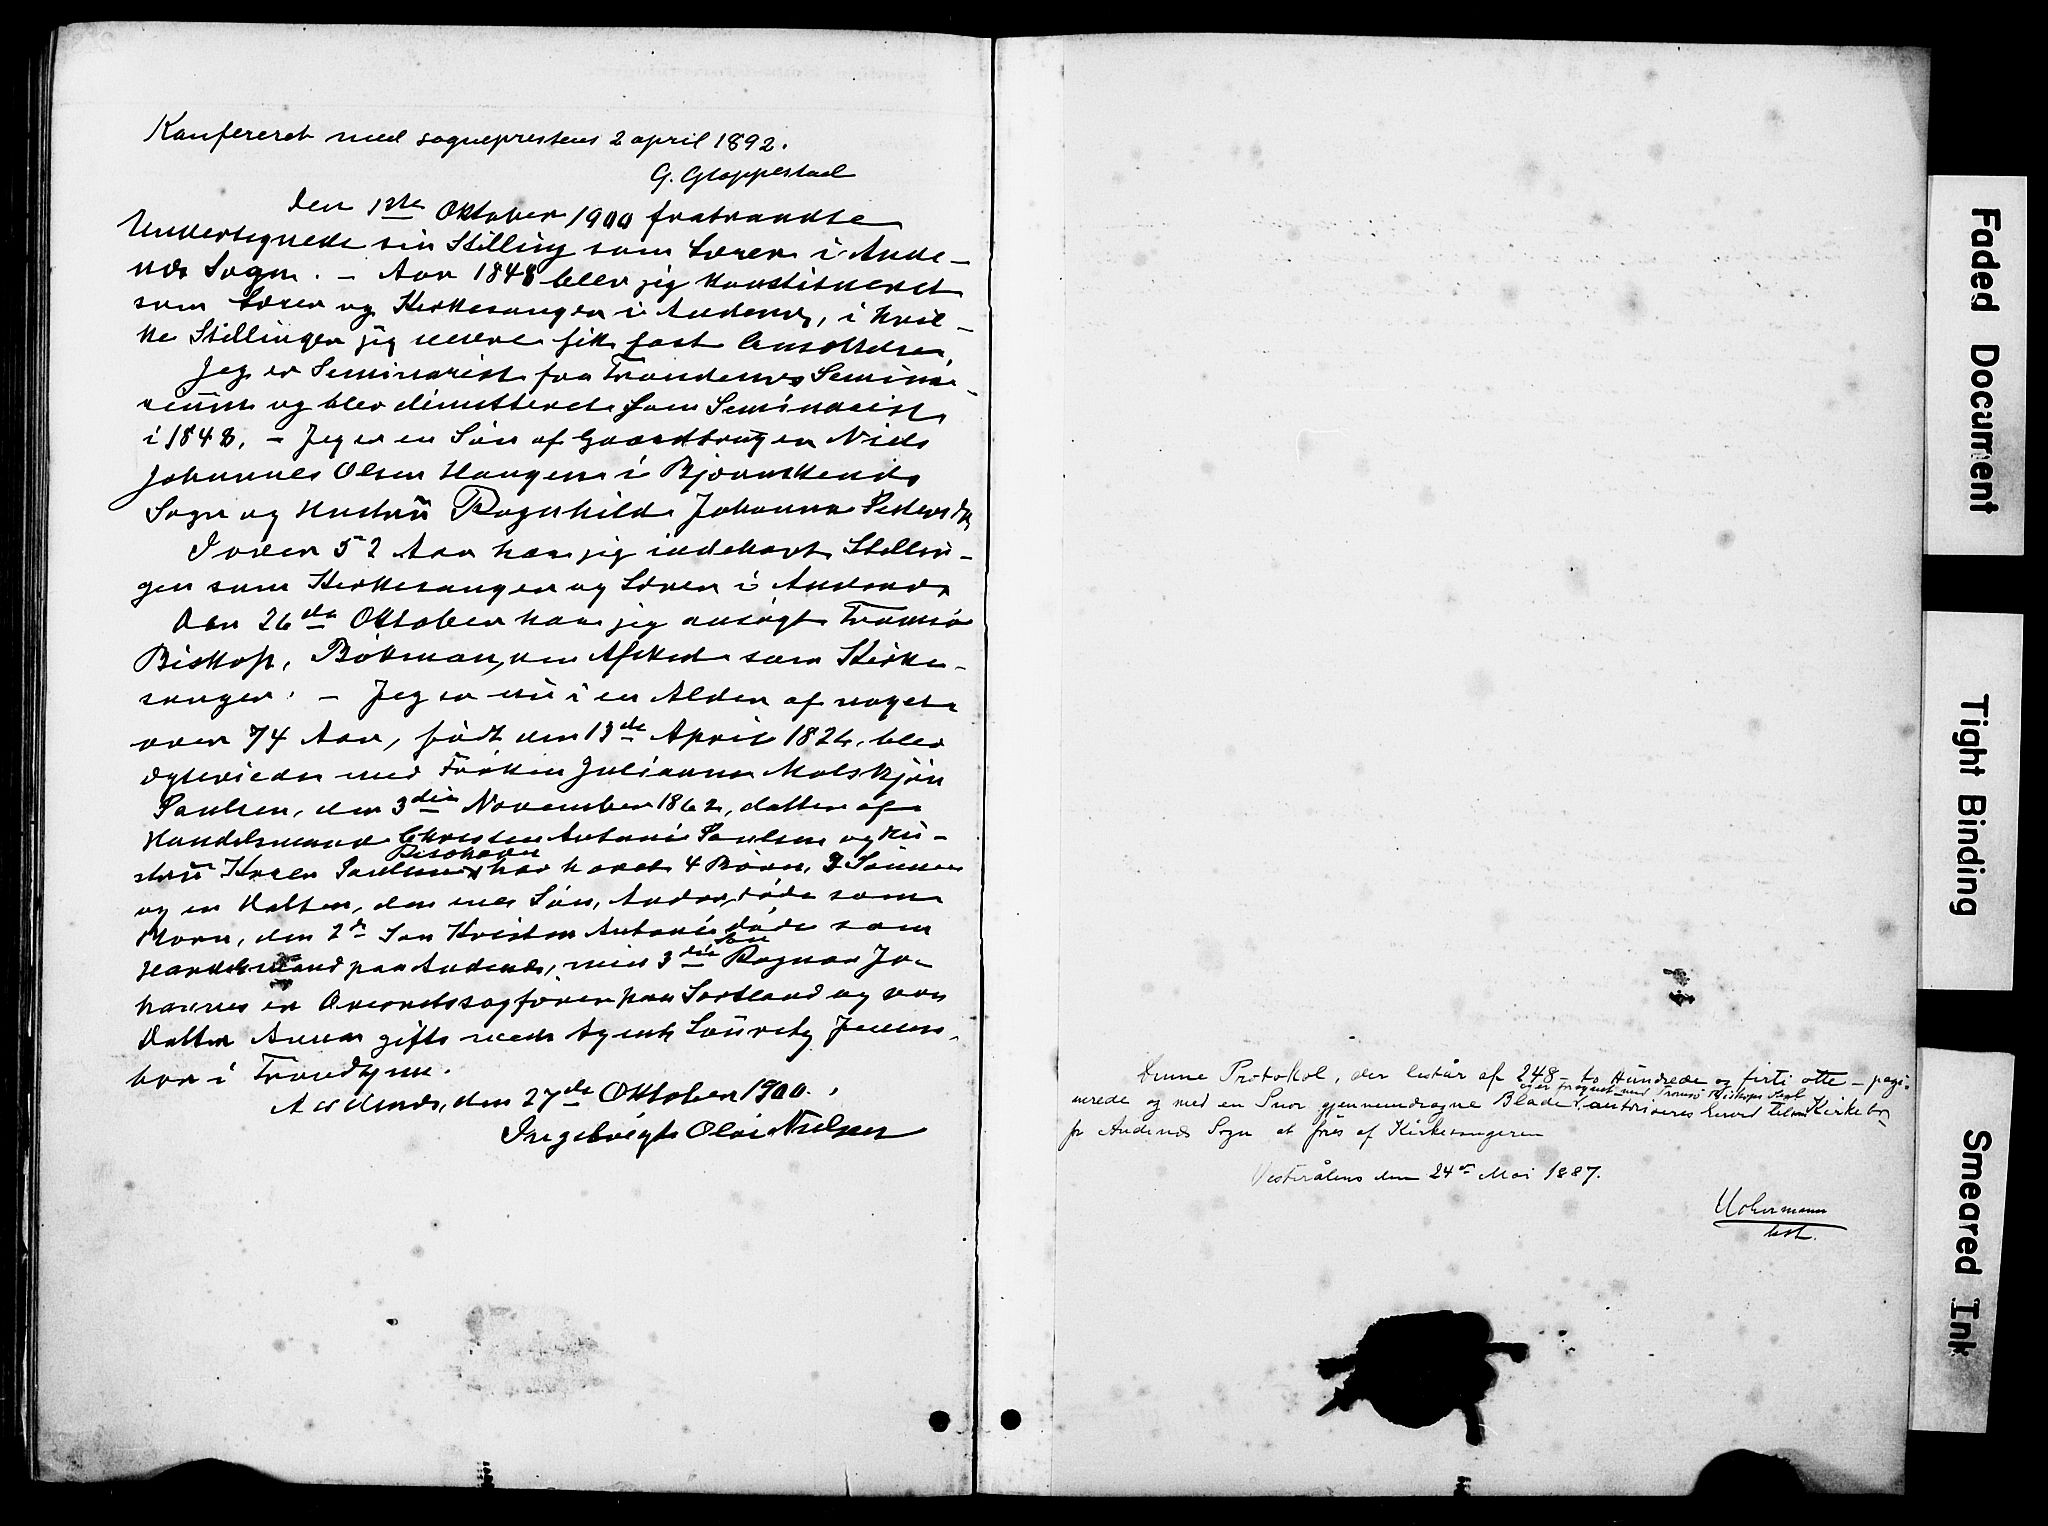 Konfereret med sogneprestens 2 april 1892.
G. Gloppestad
Den 1ste Oktober 1900 fratraadte
Undertegnede sin Stilling som Lærer i Ande-
næs Sogn. - Aar 1848 blev jeg konstitueret
som Lærer og Kirkesanger i Andenæs, i hvil-
ke Stillinger jeg senere fik fast Ansættelse.
Jeg er Seminarist fra Trondenæs Semina-
rium og blev dimitteret som Seminarist
i 1848. - Jeg er en Søn af Gaardbruger Niels
Johannes Olsen Haugen i Bjarnskinds
Sogn og Hustru Ragnhild Johanna Pedersdtr
I over 52 Aar har jeg indehavt Stillin-
gen som Kirkesanger og Lærer i Andenæs
Den 26de Oktober har jeg ansøgt Tromsø
Biskop, Bøkman, om Afsked som Kirke-
sanger. - Jeg er nu i en Alder af noget
over 74 Aar, født den 13de April 1826, blev
ægteviede med Frøken Julianna
Paulsen, den 3die November 1862, datter af
Handelsmand Christen Antoni Paulsen og Hu-
stru Karen Paulsen, har havet 4 Børn, 3 Sønner
og en Datter, den ene Søn, døde som
Barn, den 2de Søn Kristen Antoni døde som
Handelsmand paa Andenæs, min 3die Søn Ragnar Jo-
hannes er Overretssagfører paa Sortland og vor
Datter Anna gift med Agent Lauritz Jensen,
bor i Trondhjem.
Andenæs, den 27de Oktober 1900.
Ingebrigt Olai Nielsen
Denne Protokol, der består af 248 - to Hundrede og firti otte - pagi-
nerede og med en Snor gjennemdragne Blade og er forsynet med Tromsø Biskops Segl, autoriseres herved til Kirkebog
for Andenæs Sogn at føres af Kirkesangeren
Vesterålens den 24de Mai 1887.
Uchermann
kst.
Faded Document
Tight Binding
Smeared Ink